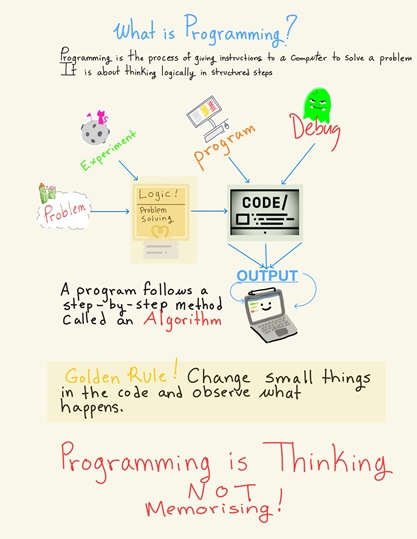 What is Programming?
Programming is the process of giving instructions to a computer to solve a problem
It is about thinking logically in structured steps
Experiment
program
Debug
Problem
Logic!
Problem
Solving
CODE/
OUTPUT
A program follows a
step-by-step method
called an Algorithm
Golden Rule! Change small things
in the code and observe what
happens.
Programming is Thinking
NOT
Memorising!